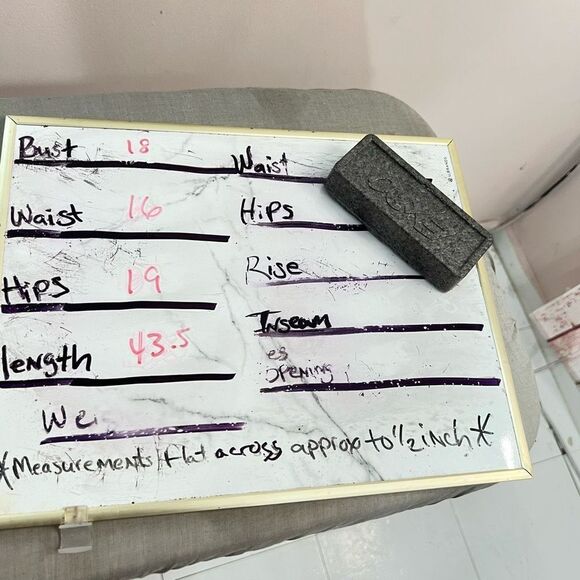 Bust 18
Waist 16
Hips 19
length 43.5
We
Waist
Hips
Rise
Inseam
es
opening
*Measurements flat across approx to 1/2 inch*